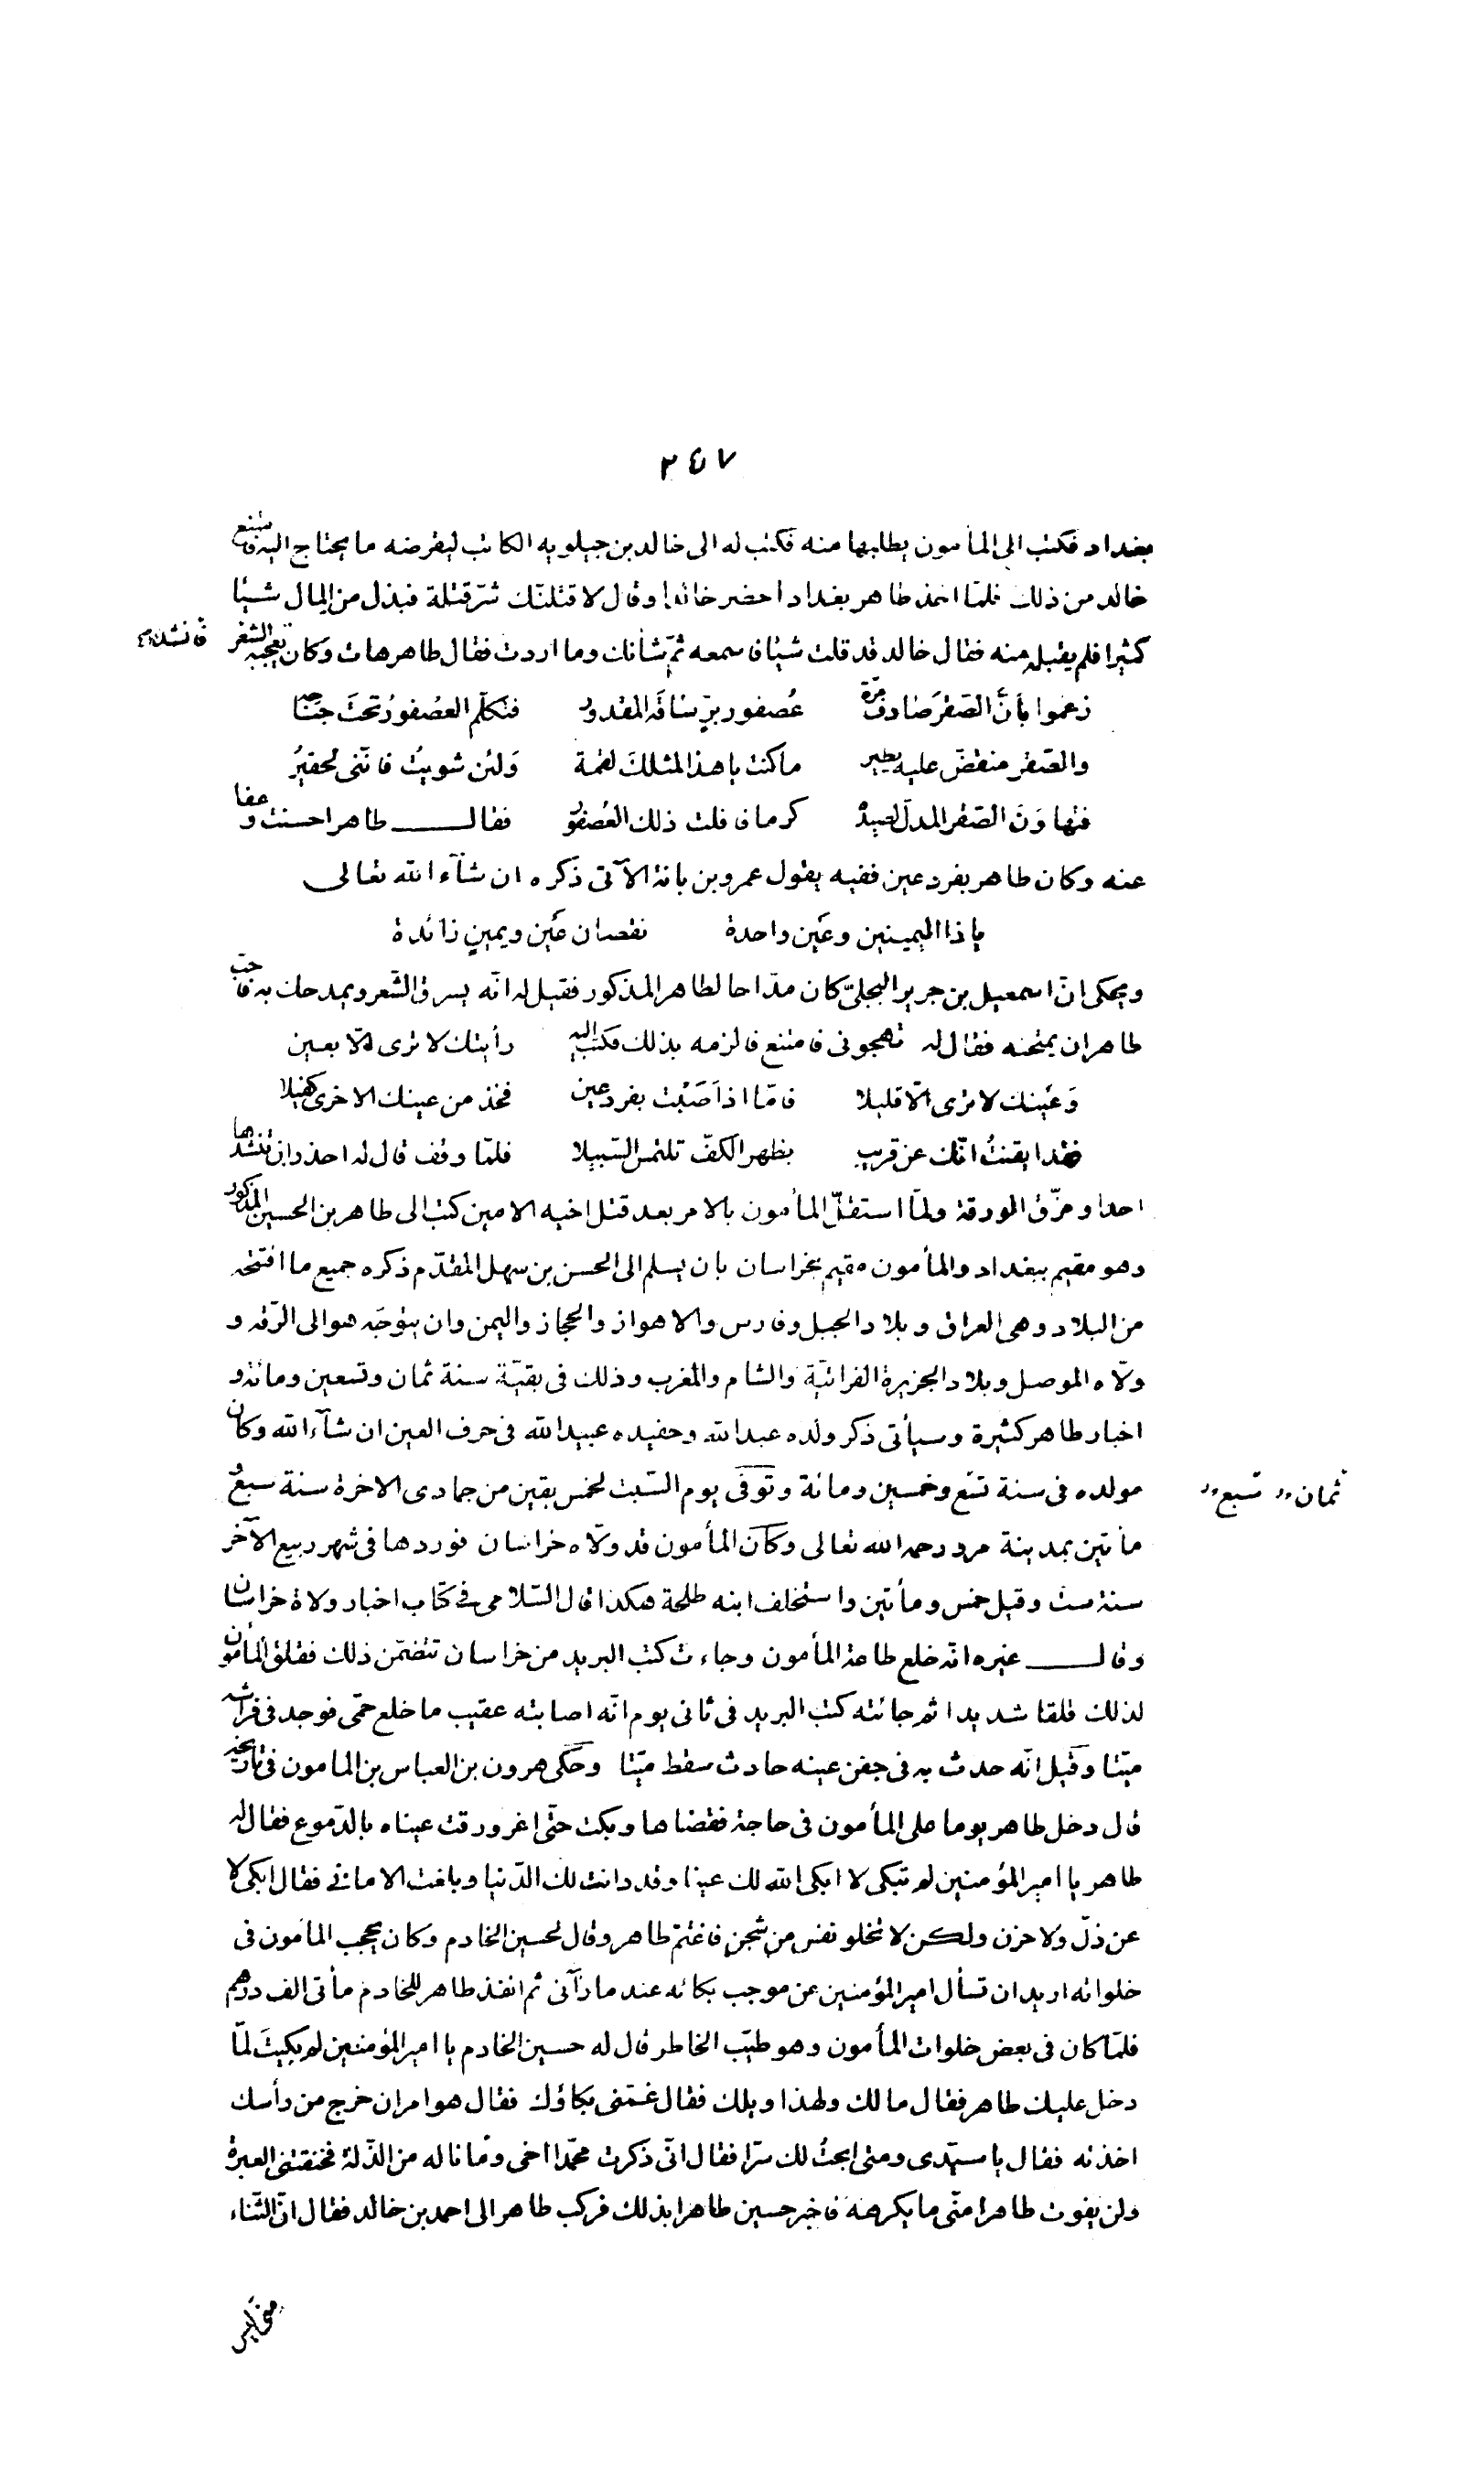 ٢٤٧
بغداد فكتب الى المأمون يطلبها منه فكتب له الى خالد بن جيلويه الكاتب ليقرضه ما يحتاج اليه فامتنع
خالد من ذلك فلمّا اخذ طاهر بغداد احضر خالدا وقال لاقتلنّك شرّ قتلة فبذل من المال شيئا
كثيرا فلم يقبله منه فقال خالد قد قلت شيئا فاسمعه ثمّ شأنك وما اردت فقال طاهر هات وكان يعجبه الشعر فانشده
زعموا بأنّ الصّقر صادف مرّة عُصفور برّ ساقه المقدور فتكلّم العصفورُ تحتَ جناحه
والصّقر منقضّ عليه يطير ما كنت يا هذا لمثلك لقمة وَلئن شويتُ فانّني لحقيرُ
فتهاوَن الصّقر المدلّ لصيده كرما فافلت ذلك العُصفور فقال طاهر احسنت وعفا
عنه وكان طاهر بفرد عين ففيه يقول عمرو بن بانة الآتى ذكره ان شآء الله تعالى
يا ذا اليمينين وعَين واحدة نقصان عَين ويمينٍ زائدة
ويحكى انّ اسمعيل بن جرير البجلىّ كان مدّاحا لطاهر المذكور فقيل له انّه يسرق الشّعر ويمدحك به فاحبّ
طاهر ان يمتحنه فقال له تهجونى فامتنع فالزمه بذلك فكتب اليه رأيتك لا ترى الّا بعين
وَعَينك لا ترى الّا قليلا فامّا اذ اَصَبْت بفرد عين فخذ من عينك الاخرى كفيلا
فقد ايقنتُ انّك عن قريب بظهر الكفّ تلتمس السّبيلا فلمّا وقف قال له احذر ان تنشدها
احدا ومزّق الورقة ولمّا استقلّ المأمون بالامر بعد قتل اخيه الامين كتب الى طاهر بن الحسين المذكور
وهو مقيم ببغداد والمأمون مقيم بخراسان بان يسلم الى الحسن بن سهل المقدّم ذكره جميع ما افتتحه
من البلاد وهى العراق وبلاد الجبل وفارس والاهواز والحجاز واليمن وان يتوجّه هو الى الرّقه و
ولّاه الموصل وبلاد الجزيرة الفراتيّة والشام والمغرب وذلك فى بقيّة سنة ثمان وتسعين ومائة و
اخبار طاهر كثيرة وسيأتى ذكر ولده عبد الله وحفيده عبيد الله فى حرف العين ان شآء الله وكان
مولده فى سنة تسع وخمسين ومائة وتوفّى يوم السّبت لخمس بقين من جمادى الاخرة سنة سبع و ثمان سبع
مأتين بمدينة مرو رحمه الله تعالى وكان المأمون قد ولّاه خراسان فوردها فى شهر ربيع الآخر
سنة ست وقيل خمس ومأتين واستخلف ابنه طلحة هكذا قال السّلامى فى كتاب اخبار ولاة خراسان
وقال غيره انّه خلع طاعة المأمون وجاءت كتب البريد من خراسان تتضمّن ذلك فقلق المأمون
لذلك قلقا شديدا ثم جائته كتب البريد فى ثانى يوم انّه اصابته عقيب ما خلع حمّى فوجد فى فراشه
ميّتا وقيل انّه حدث به فى جفن عينه حادث سقط ميّتا وحكى هرون بن العباس بن المامون فى تاريخه
قال دخل طاهر يوما على المأمون فى حاجة فقضاها وبكت حتّى اغرورقت عيناه بالدّموع فقال له
طاهر يا امير المؤمنين لم تبكى لا ابكى الله لك عينا وقد دانت لك الدّنيا وبلغت الامانى فقال ابكى لا
عن ذلّ ولا حزن ولكن لا تخلو نفس من شجن فاغتمّ طاهر وقال لحسين الخادم وكان يحجب المامون فى
خلواته اريد ان تسأل امير المؤمنين عن موجب بكائه عند ما رآنى ثم انفذ طاهر للخادم مأتى الف درهم
فلمّا كان فى بعض خلوات المأمون وهو طيّب الخاطر قال له حسين الخادم يا امير المؤمنين لم بكيتَ لمّا
دخل عليك طاهر فقال ما لك ولهذا ويلك فقال غمّنى بكاؤك فقال هو امر ان خرج من رأسك
اخذته فقال يا سيّدى ومتى ابحتُ لك سرّا فقال انّى ذكرت محمّدا اخى وما ناله من الذّلة فخنقتنى العبرة
ولن يفوت طاهرا منّى ما يكرهه فاخبر حسين طاهرا بذلك فركب طاهر الى احمد بن خالد فقال انّ الثّناء
منى ليس